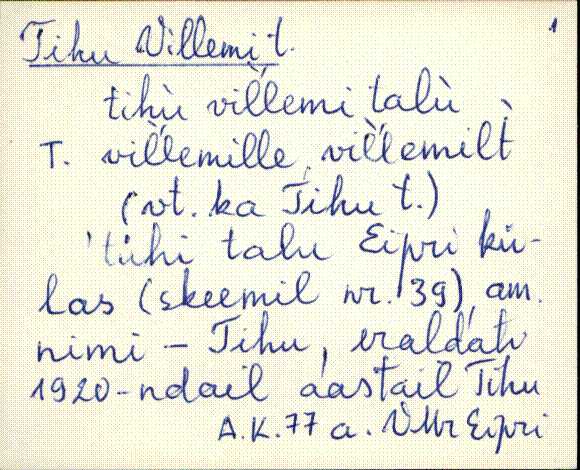 1
Tihu Villemi t.
tihù vil̆lemi talù
T. vil̆lemille, vil̆lemil̀t
(vt. ka Tihu t.)
'tühi talu Eipri kü-
las (skeemil nr. 39), am.
nimi – Tihu, eraldatv
1920-ndail aastail Tihu
A.K. 77 a. VMr Eipri